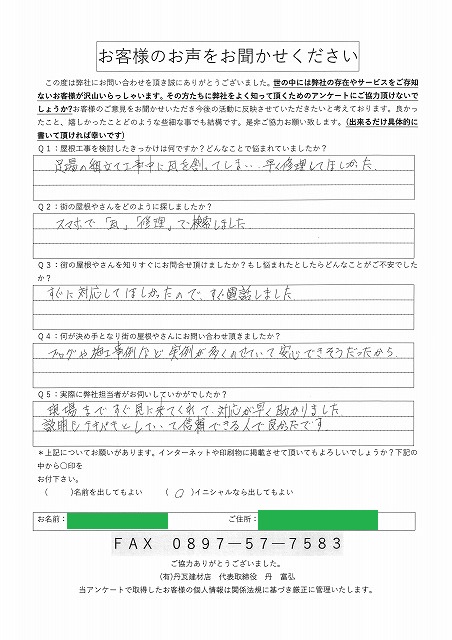 お客様のお声をお聞かせください
この度は弊社にお問い合わせを頂き誠にありがとうございました。世の中には弊社の存在やサービスをご存知
ないお客様が沢山いらっしゃいます。その方たちに弊社をよく知って頂くためのアンケートにご協力頂けないで
しょうか?お客様のご意見をお聞かせいただき今後の活動に反映させていただきたいと考えております。良かっ
たこと、嬉しかったことどのような些細な事でも結構です。是非ご協力お願い致します。(出来るだけ具体的に
書いて頂ければ幸いです)
Q1：屋根工事を検討したきっかけは何ですか？どんなことで悩まれていましたか？
足場の組立て工事中に瓦を割ってしまい、早く修理してほしかった。
Q2：街の屋根やさんをどのように探しましたか？
スマホで「瓦」「修理」で検索しました
Q3：街の屋根やさんを知りすぐにお問合せ頂けましたか？もし悩まれたとしたらどんなことがご不安でした
か？
すぐに対応してほしかったので、すぐ電話しました
Q4：何が決め手となり街の屋根やさんにお問い合わせ頂きましたか？
ブログや施工事例など実例が多くのせていて安心できそうだったから。
Q5：実際に弊社担当者がお伺いしていかがでしたか？
現場まですぐ見に来てくれて、対応が早く助かりました
説明もテキパキとしていて信頼できる人で良かたです。
＊上記についてお願いがあります。インターネットや印刷物に掲載させて頂いてもよろしいでしょうか？下記の
中から〇印を
お付下さい。
（　　）名前を出してもよい　（ ○ ）イニシャルなら出してもよい
お名前：　ご住所：
FAX 0897－57－7583
ご協力ありがとうございました。
(有)丹瓦建材店　代表取締役　丹　富弘
当アンケートで取得したお客様の個人情報は関係法規に基づき厳正に管理いたします。